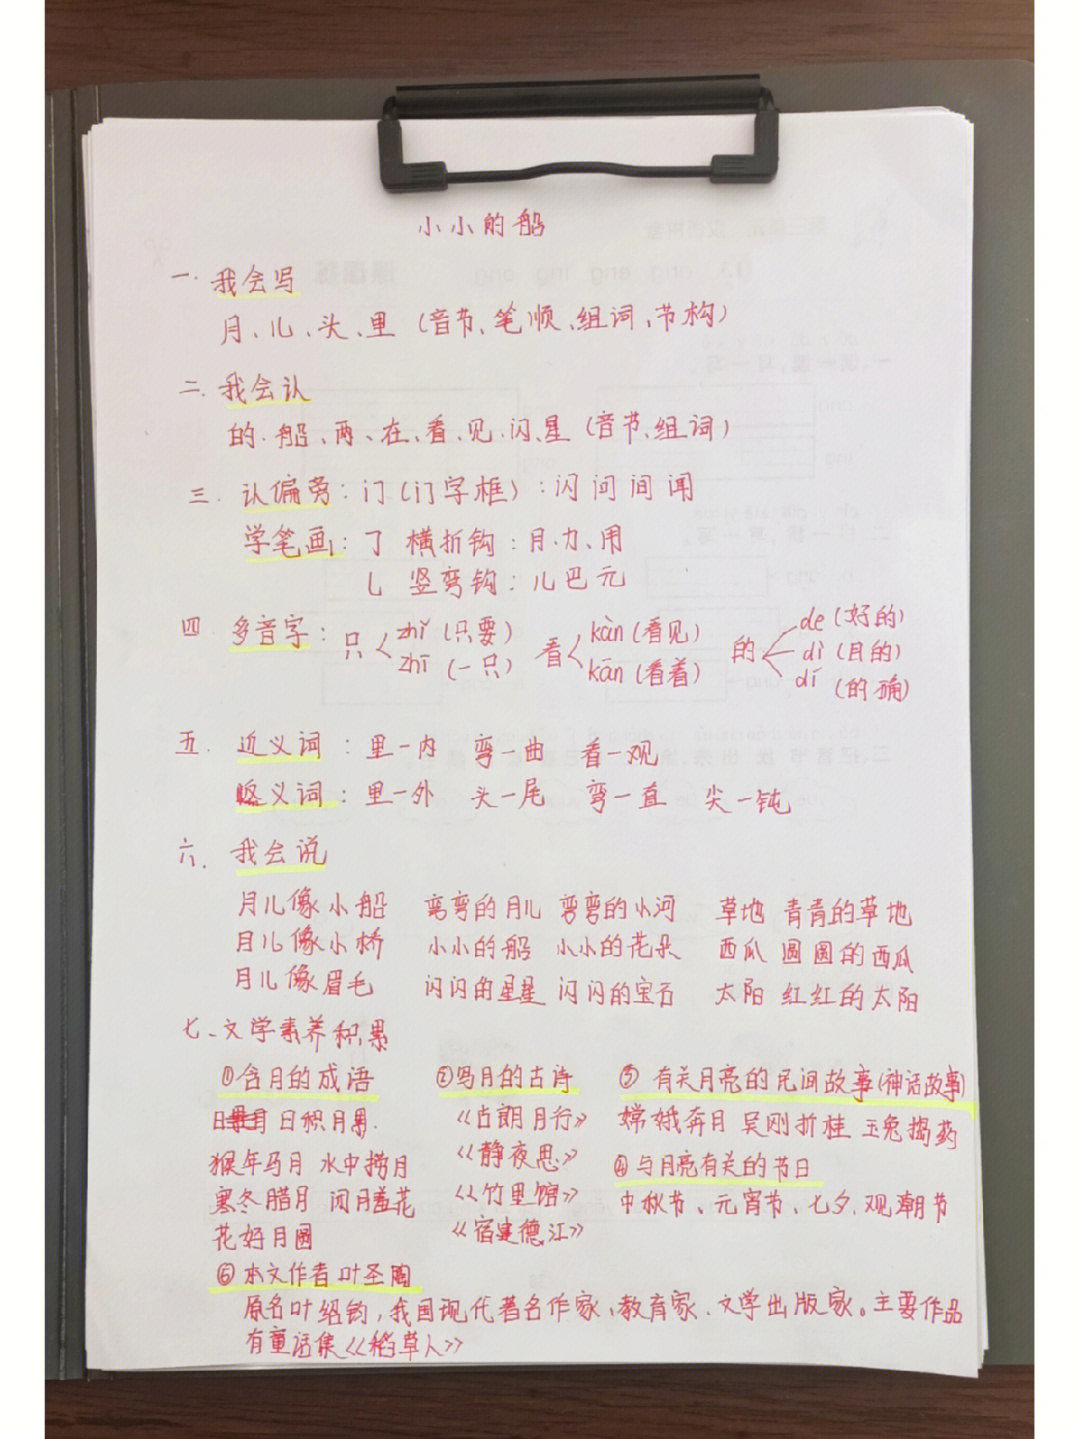 小小的船
一.我会写
月、儿、头、里（音节、笔顺、组词、节构）
二.我会认
的.船、两、在、看、见.闪、星（音节、组词）
三.认偏旁：门（门字框）：闪 问 间 闻
学笔画：㇆ 横折钩：月.力、用
乚 竖弯钩：儿 巴 元
四.多音字：只 zhǐ（只要） zhī（一只） 看 kàn（看见） kān（看着） 的 de（好的） dì（目的） dí（的确）
五.近义词：里一内 弯一曲 看一观
义词：里一外 头一尾 弯一直 尖一钝
六.我会说
月儿像小船 弯弯的月儿 弯弯的小河 草地 青青的草地
月儿像小桥 小小的船 小小的花朵 西瓜 圆圆的西瓜
月儿像眉毛 闪闪的星星 闪闪的宝石 太阳 红红的太阳
七、文学素养积累
①含月的成语 ②写月的古诗 ③ 有关月亮的民间故事(神话故事)
日积月累. 《古朗月行》 嫦娥奔月 吴刚折桂 玉兔捣药
猴年马月 水中捞月 《静夜思》 ④与月亮有关的节日
寒冬腊月 闭月羞花 《竹里馆》 中秋节、元宵节、七夕.观潮节
花好月圆 《宿建德江》
⑤本文作者叶圣陶
原名叶绍钧，我国现代著名作家、教育家.文学出版家。主要作品
有童话集《稻草人》